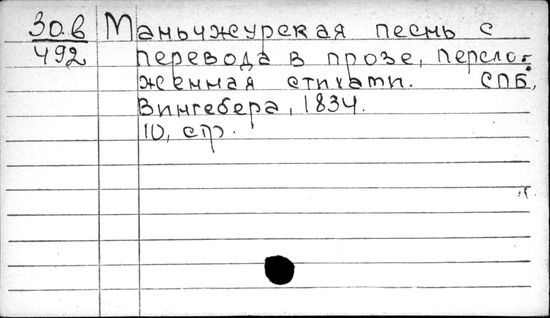 30.в Маньчжурская песнь с
492 перевода в прозе, перело-
женная стихати. СПБ,
Вингебера, 1834.
10, стр.